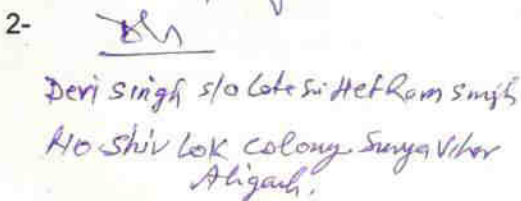 2-
Devi Singh s/o Late Sri Het Ram Singh
R/o Shiv Lok Colony Surya Vihar
Aligarh.